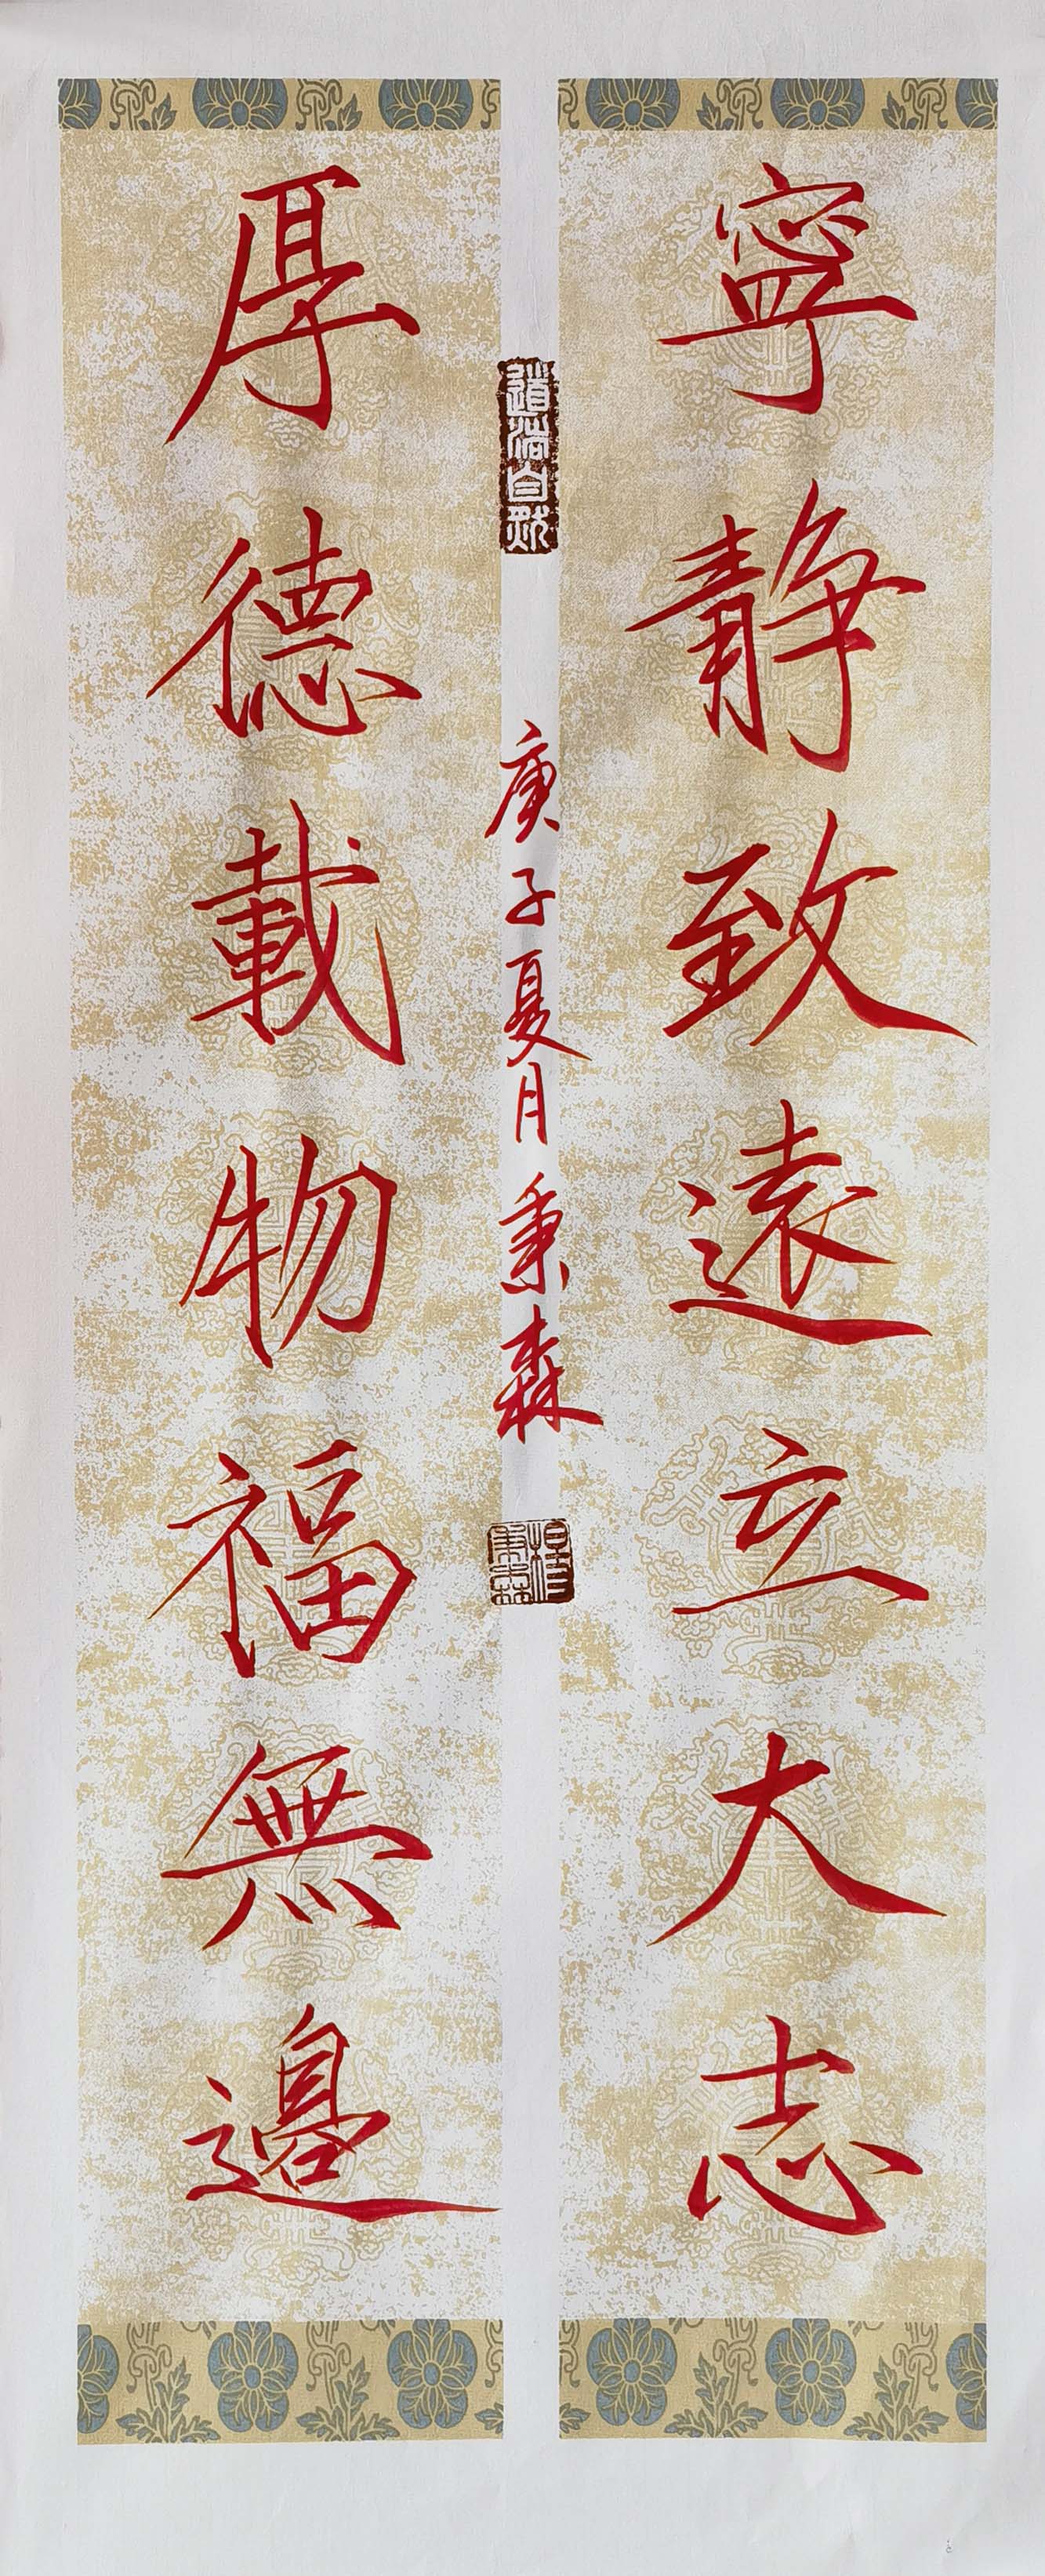 寧靜致遠立大志
厚德載物福無邊
道法自然
庚子夏月秉森